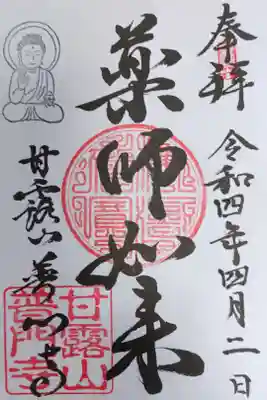 奉拝
令和四年四月二日
薬師如来
甘露山
普門寺
甘露山
普門寺